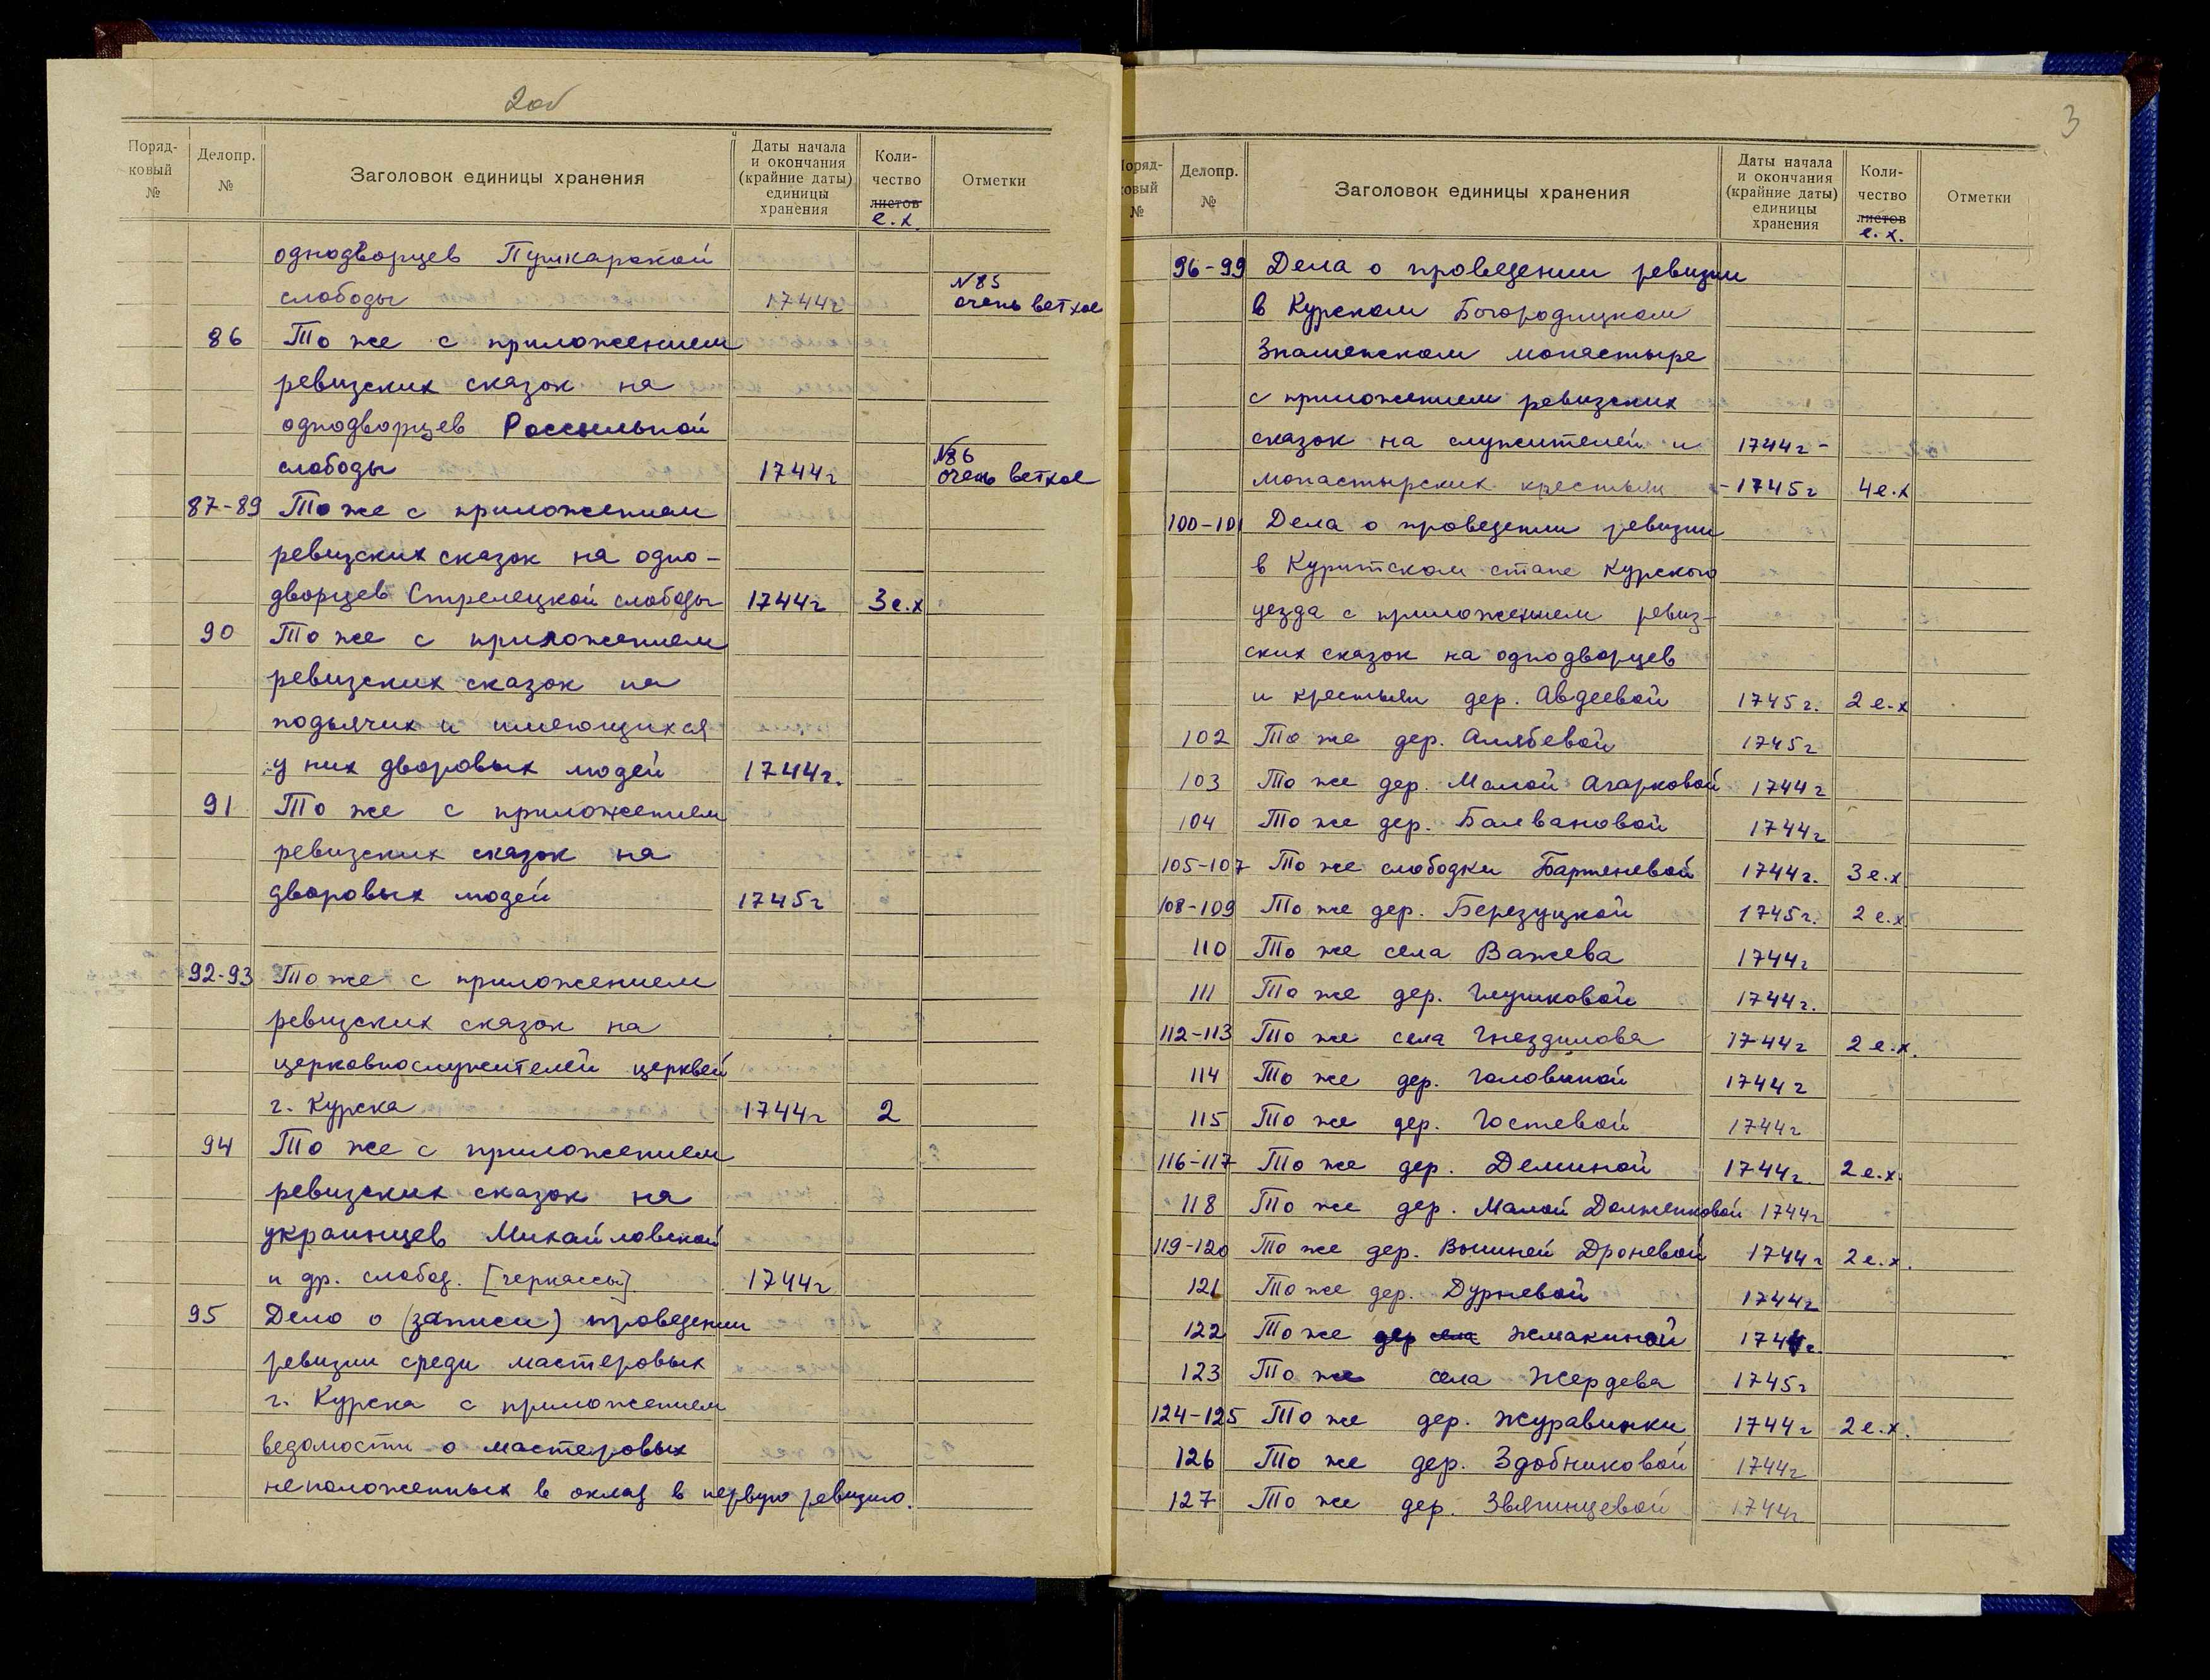 2об
Поряд-
ковый
№
Делопр.
№
Заголовок единицы хранения
Даты начала
и окончания
(крайние даты)
единицы
хранения
Коли-
чество
листов
е.х.
Отметки
однодворцев Пушкарской
слободы 1744г №85
очень ветхое
86 То же с приложением
ревизских сказок на
однодворцев Рассыльной
слободы 1744г №86
очень ветхое
87-89 То же с приложением
ревизских сказок на одно-
дворцев Стрелецкой слободы 1744г 3е.х
90 То же с приложением
ревизских сказок на
подьячих и имеющихся
у них дворовых людей 1744г.
91 То же с приложением
ревизских сказок на
дворовых людей 1745г
92-93 То же с приложением
ревизских сказок на
церковнослужителей церквей
г. Курска 1744г 2
94 То же с приложением
ревизских сказок на
украинцев Михайловской
и др. слобод. [черкассы] 1744г
95 Дело о (записи) проведении
ревизии среди мастеровых
г. Курска с приложением
ведомости о мастеровых
неположенных в оклад в первую ревизию.
3
Поряд-
ковый
№
Делопр.
№
Заголовок единицы хранения
Даты начала
и окончания
(крайние даты)
единицы
хранения
Коли-
чество
листов
е.х.
Отметки
96-99 Дела о проведении ревизии
в Курском Богородицком
Знаменском монастыре
с приложением ревизских
сказок на служителей и 1744г-
монастырских крестьян -1745г 4е.х
100-101 Дела о проведении ревизии
в Куритском стане Курского
уезда с приложением ревиз-
ских сказок на однодворцев
и крестьян дер. Авдеевой 1745г. 2е.х
102 То же дер. Алябевой 1745г
103 То же дер. Малой Агарковой 1744г
104 То же дер. Балвановой 1744г
105-107 То же слободки Бартеневой 1744г. 3е.х
108-109 То же дер. Березуцкой 1745г. 2е.х
110 То же села Важева 1744г
111 То же дер. Глушковой 1744г.
112-113 То же села Гнездилова 1744г 2е.х.
114 То же дер. Головиной 1744г
115 То же дер. Гостевой 1744г
116-117 То же дер. Деминой 1744г. 2е.х.
118 То же дер. Малой Долженковой 1744г
119-120 То же дер. Вышней Дроневой 1744г 2е.х.
121 То же дер. Дурневой 1744г
122 То же дер села Жмакиной 1744г.
123 То же села Жердева 1745г
124-125 То же дер. Журавинки 1744г 2е.х.
126 То же дер. Здобниковой 1744г
127 То же дер. Звягинцевой 1744г